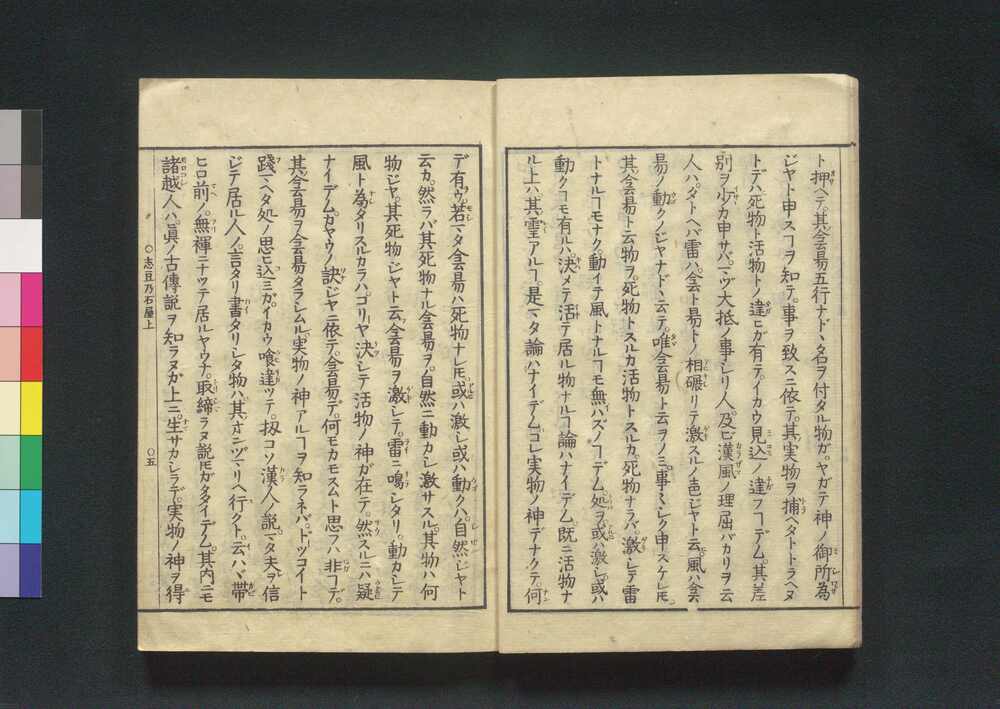 ト押ヘテ。其会易五行ナドヽ名ヲ付タル物ガ。ヤガテ神ノ御所為
ジヤト申スヿヲ知テ。事ヲ致スニ依テ。其実物ヲ捕ヘタトトラヘヌ
トデハ死物ト活物トノ違ヒガ有テ。イカウ見込ノ違フヿデム。其差
別ヲ少カ申サバ。マヅ大抵ノ事シリ人。及ビ漢風ノ理屈バカリヲ云
人ハ。タトヘバ雷ハ。会ト易トノ相碾リテ激スルノ声ジヤト云。風ハ会
易ノ動クノジヤナドヽ云テ。唯会易ト云ヲノミ。事々シク申スケレ𪜈。
其会易ト云物ヲ。死物トスルカ活物トスルカ。死物ナラバ。激シテ雷
トナルヿモナク動イテ風トナルヿモ無ハズノヿデム。処ヲ或ハ激シ。或ハ
動クヿモ有ルハ決メテ活テ居ル物ナルヿ論ハナイデム。既ニ活物ナ
ル上ハ。其霊アルヿ。是マタ論ハナイデム。コレ実物ノ神デナクテ。何
デ有ウ。若マタ会易ハ死物ナレ𪜈。或ハ激シ或ハ動クハ。自然ジヤト
云カ。然ラバ其死物ナル会易ヲ。自然ニ動カシ激サスル。其物ハ何
物ジヤ。其死物ジヤト云会易ヲ激シテ。雷ニ鳴シタリ。動カシテ
風ト為タリスルカラハ。ゴリヤ決シテ活物ノ神ガ在テ。然スルニハ疑
ナイデム。カヤウノ訣ジヤニ依テ。会易デ。何モカモスムト思フハ非ヿデ。
其会易ヲ会易タラシムル。実物ノ神アルヿヲ知ラネバ。ドツコイト
踐マヘタ処ノ思ヒ込ミガ。イカウ喰違ツテ。扨コソ漢人ノ説。マタ夫ヲ信
ジテ居ル人ノ。言タリ書タリシタ物ハ。其オニヅマリヘ行クト。云ハヾ帯
ヒロ前ノ。無褌ニナツテ居ルヤウナ。取締ラヌ説𪜈ガタイデム。其内ニモ
諸越人ハ。眞ノ古傳説ヲ知ラヌガ上ニ。生サカシラデ。実物ノ神ヲ得
○志豆乃石屋上
○五